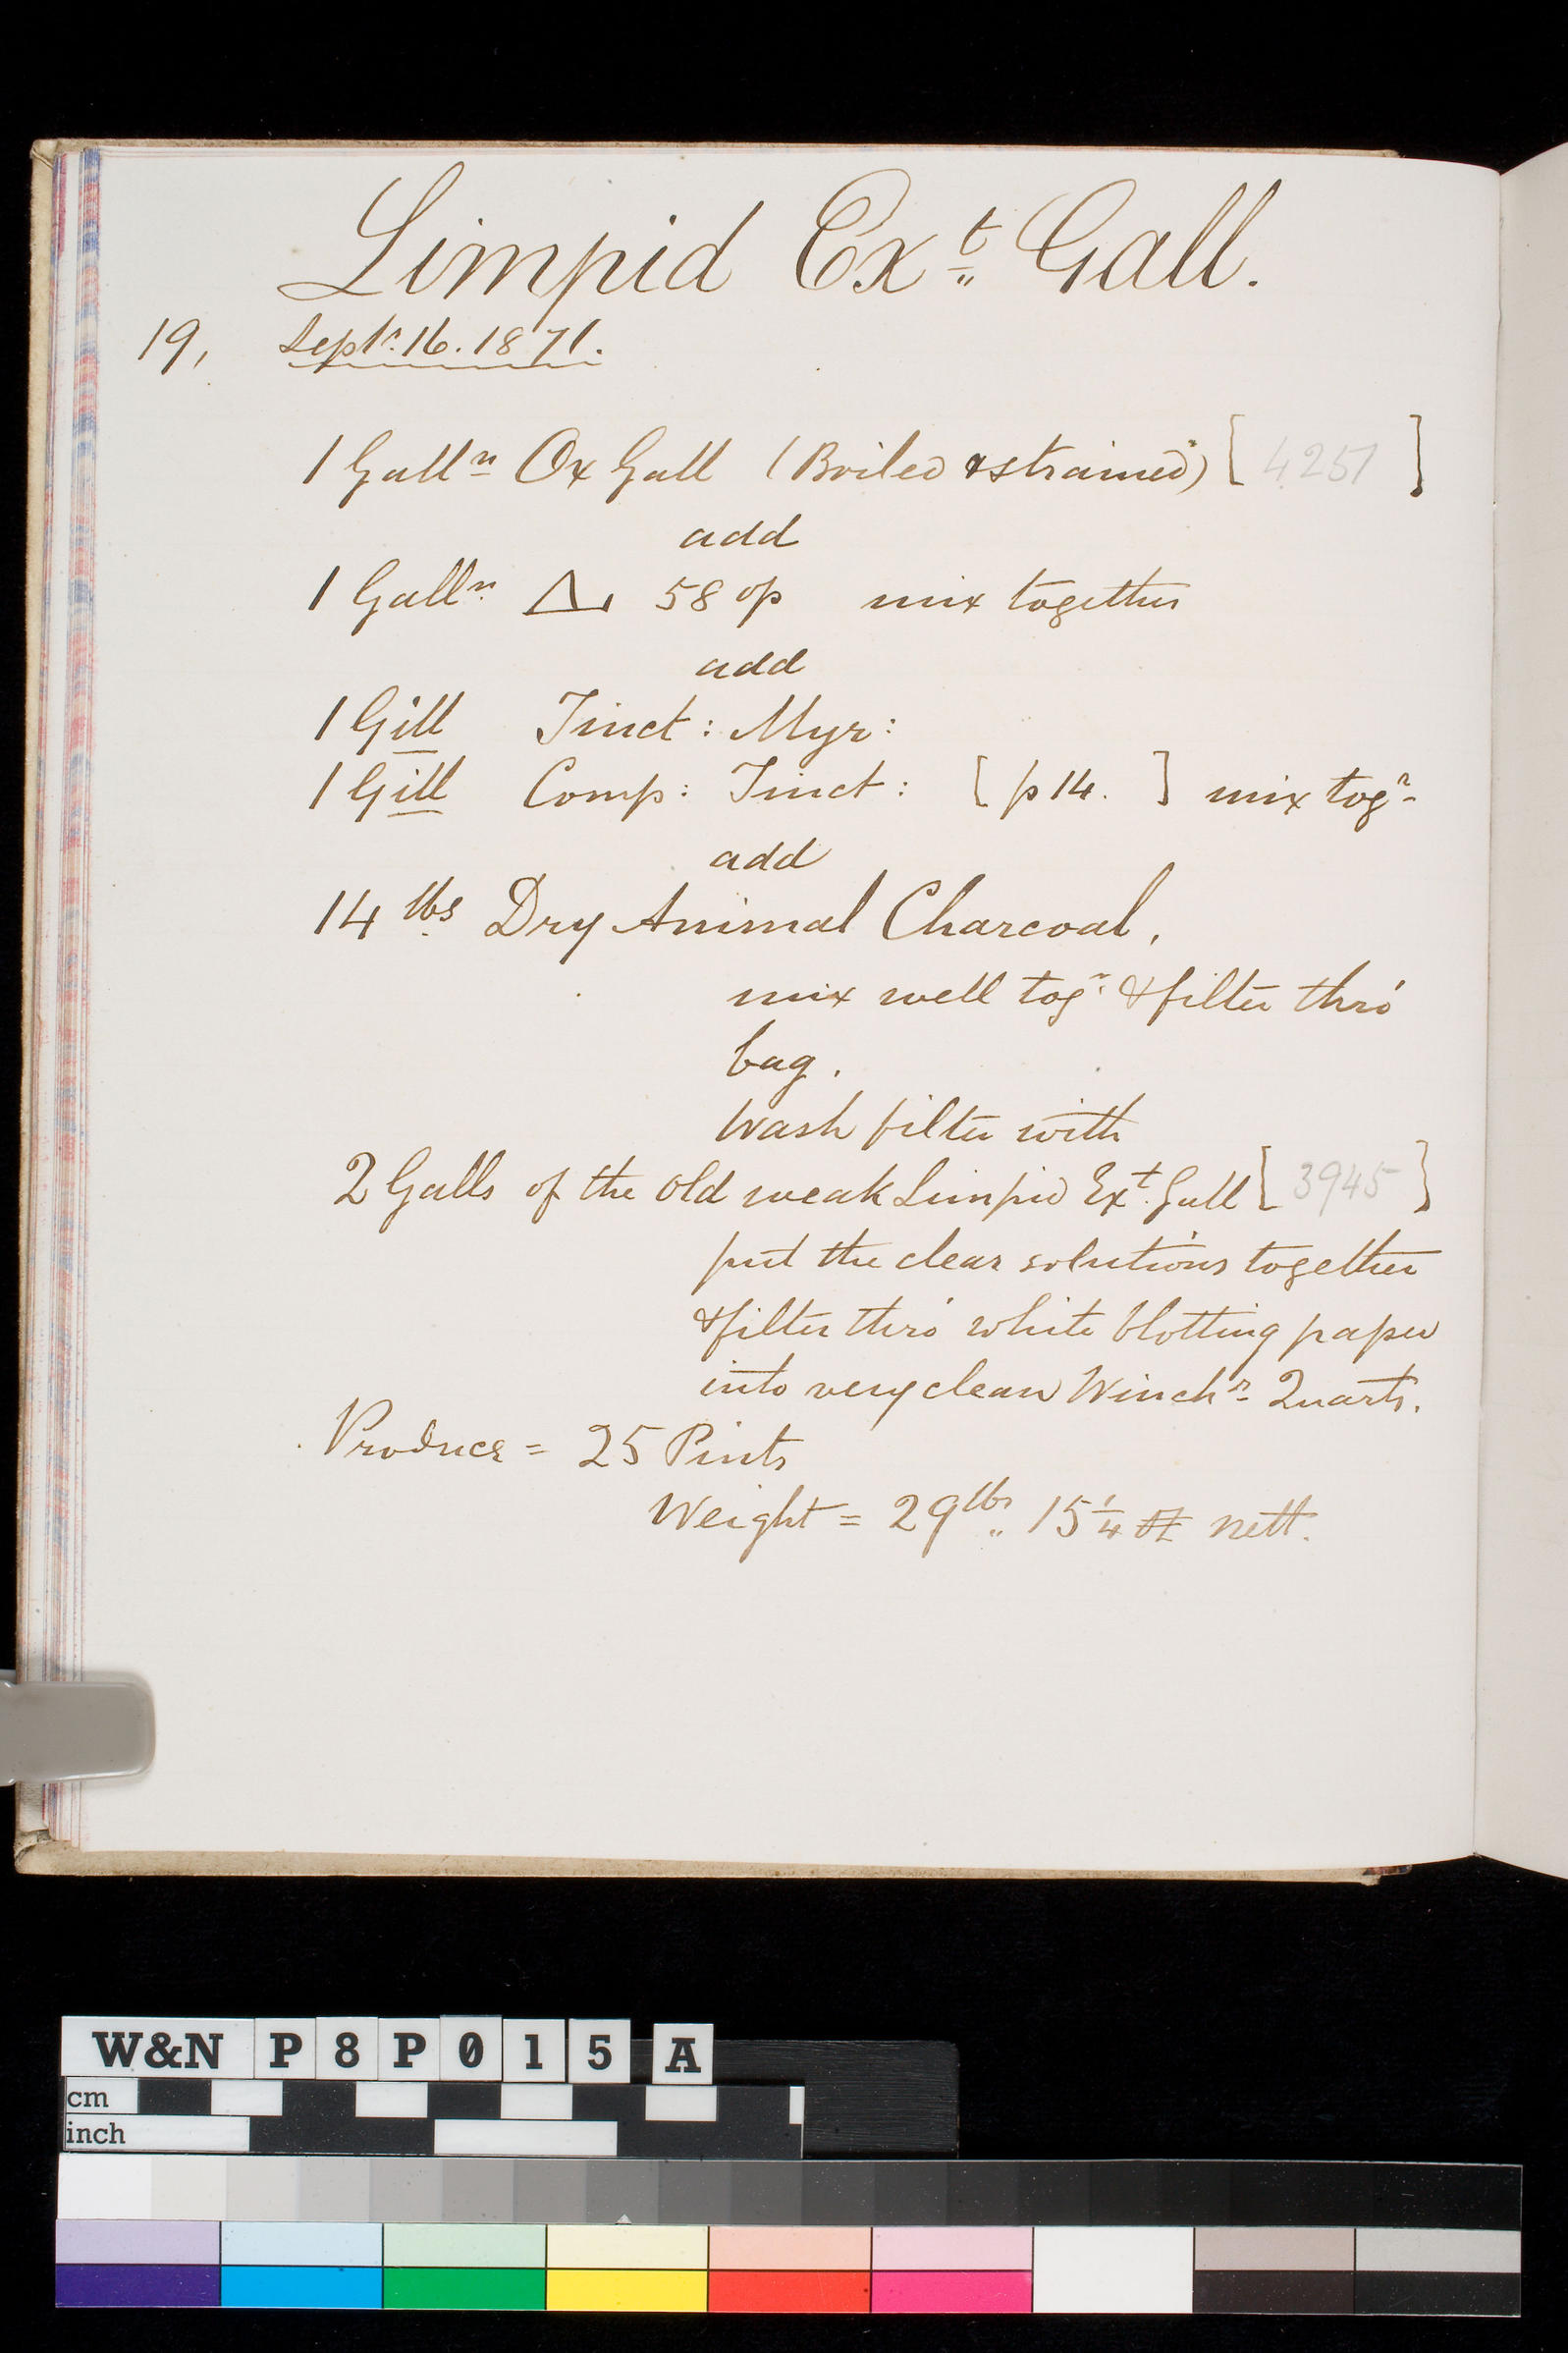 Limpid Ext. Gall.
19, Septr. 16. 1871.
1 Galln Ox Gall (Boiled & strained) [4251]
add
1 Galln. △ 58 op mix together
add
1 Gill Tinct: Myr:
1 Gill Comp: Tinct: [p 14.] mix togr
add
14 lbs Dry Animal Charcoal,
mix well togr. & filter thro'
bag.
Wash filter with
2 Galls of the old weak Limpid Ext. Gall [3945]
put the clear solutions together
& filter thro' white blotting paper
into very clean Winchr Quarts.
Produce = 25 Pints
Weight = 29 lbs 15 1/4 oz nett.
W&N P8P015A
cm
inch